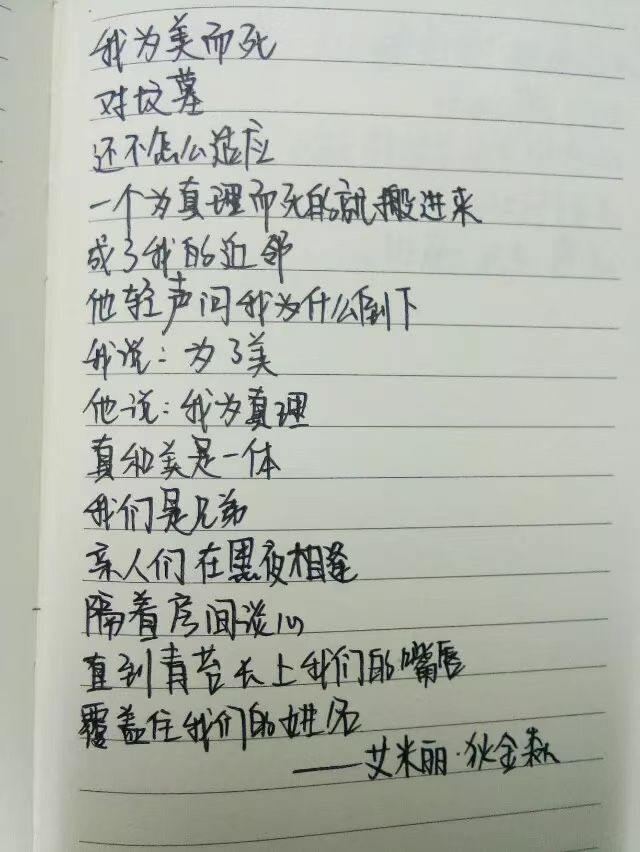 我为美而死
对坟墓
还不怎么适应
一个为真理而死的就搬进来
成了我的近邻
他轻声问我为什么倒下
我说：为了美
他说：我为真理
真和美是一体
我们是兄弟
亲人们在黑夜相逢
隔着房间谈心
直到青苔长上我们的嘴唇
覆盖住我们的姓名
——艾米丽·狄金森